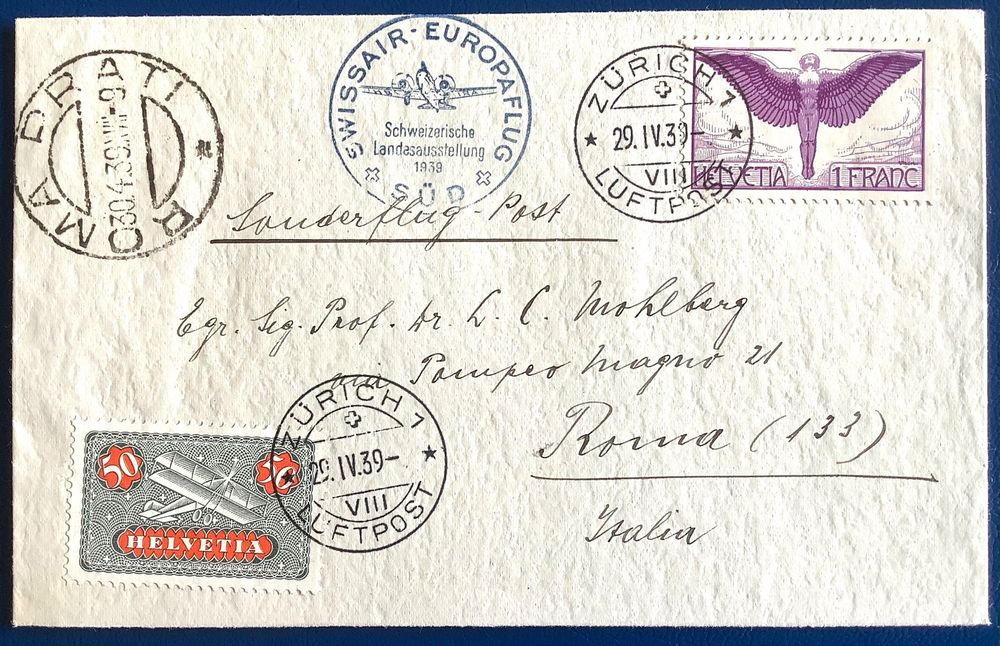 ROMA PRATI
30.4.39.XVII-9
SWISSAIR-EUROPAFLUG
Schweizerische
Landesausstellung
1939
SÜD
ZÜRICH 1
29.IV.39-
VIII
LUFTPOST
HELVETIA 1 FRANC
Sonderflug-Post
Egr. Sig. Prof. Dr. L. C. Mohlberg
via Pompeo Magno 21
Roma (133)
Italia
ZÜRICH 1
29.IV.39-
VIII
LUFTPOST
50 50
HELVETIA